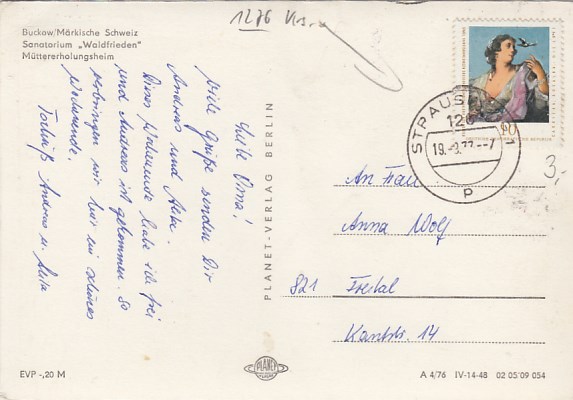 1276
Buckow/Märkische Schweiz
Sanatorium „Waldfrieden"
Müttererholungsheim
Liebe Oma!
viele Grüße senden Dir
Andreas und
Dieses Wochenende habe ich frei
und Andreas ist gekommen. So
verbringen wir hier ein schönes
Wochenende.
Andreas u.
PLANET-VERLAG BERLIN
STRAUSBERG 1
126
19.-9.77.--7
p
3,-
An Frau
Anna Wolf
821 Freital
Kantstr. 14
EVP -,20 M
PLANET
A 4/76 IV-14-48 02 05 09 054